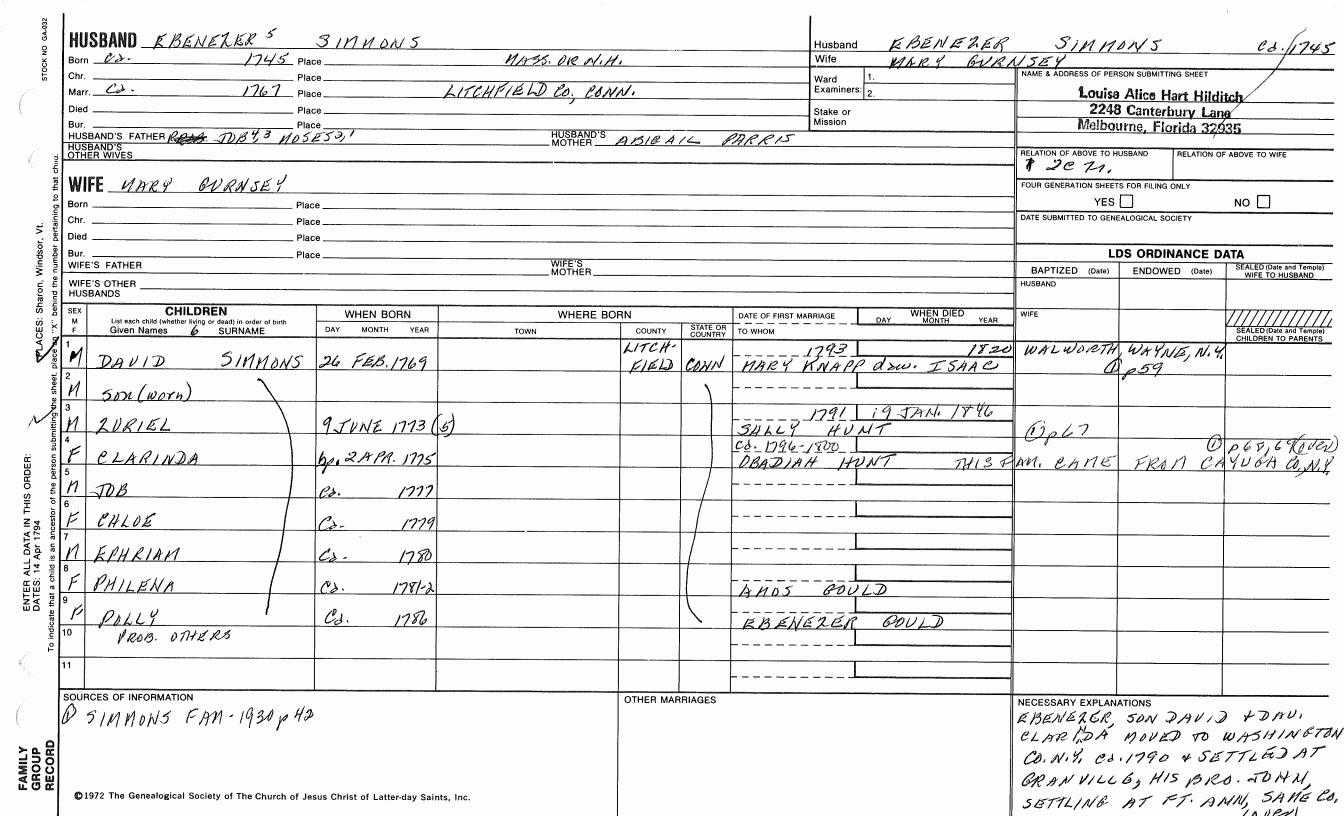 STOCK NO GA-032
HUSBAND EBENEZER 5 SIMMONS
Born Ca. 1745 Place MASS. OR N.H.
Chr. Place
Marr. Ca. 1767 Place LITCHFIELD CO, CONN.
Died Place
Bur. Place
HUSBAND'S FATHER JOB4,3 MOSES2,1 HUSBAND'S MOTHER ABIGAIL PARRIS
HUSBAND'S OTHER WIVES
Husband EBENEZER SIMMONS Ca. 1745
Wife MARY GURNSEY
Ward Examiners: 1. 2.
Stake or Mission
NAME & ADDRESS OF PERSON SUBMITTING SHEET
Louise Alice Hart Hilditch
2248 Canterbury Lane
Melbourne, Florida 32935
RELATION OF ABOVE TO HUSBAND RELATION OF ABOVE TO WIFE
FOUR GENERATION SHEETS FOR FILING ONLY
YES NO
DATE SUBMITTED TO GENEALOGICAL SOCIETY
WIFE MARY GURNSEY
Born Place
Chr. Place
Died Place
Bur. Place
WIFE'S FATHER WIFE'S MOTHER
WIFE'S OTHER HUSBANDS
LDS ORDINANCE DATA
BAPTIZED (Date) ENDOWED (Date) SEALED (Date and Temple) WIFE TO HUSBAND
HUSBAND
WIFE
SEALED (Date and Temple) CHILDREN TO PARENTS
SEX M F
CHILDREN
List each child (whether living or dead) in order of birth
Given Names 6 SURNAME
WHEN BORN
DAY MONTH YEAR
WHERE BORN
TOWN COUNTY STATE OR COUNTRY
DATE OF FIRST MARRIAGE
TO WHOM
WHEN DIED
DAY MONTH YEAR
1 M DAVID SIMMONS 26 FEB. 1769 LITCH-FIELD CONN 1793 1820 WALWORTH, WAYNE, N.Y.
MARY KNAPP dau. ISAAC ① p59
2 M SON (worn)
3 M ZURIEL 9 JUNE 1773 (5) 1791 19 JAN. 1846
SALLY HUNT ① p67
4 F CLARINDA bp. 2 APR. 1775 Ca. 1796-1800 ① p68,69 (OVER)
OBADIAH HUNT THIS FAM. CAME FROM CAYUGA CO, N.Y.
5 M JOB Ca. 1777
6 F CHLOE Ca. 1779
7 M EPHRIAM Ca. 1780
8 F PHILENA Ca. 1781-2 AMOS GOULD
9 F POLLY Ca. 1786 EBENEZER GOULD
10 PROB. OTHERS
11
SOURCES OF INFORMATION
① SIMMONS FAM - 1930 p 42
OTHER MARRIAGES
NECESSARY EXPLANATIONS
EBENEZER, SON DAVID + DAU.
CLARINDA MOVED TO WASHINGTON
CO. N.Y. Ca. 1790 & SETTLED AT
GRANVILLE, HIS BRO. JOHN,
SETTLING AT FT. ANN, SAME CO.
(OVER)
©1972 The Genealogical Society of The Church of Jesus Christ of Latter-day Saints, Inc.
FAMILY GROUP RECORD
ENTER ALL DATA IN THIS ORDER:
DATES: 14 Apr 1794
PLACES: Sharon, Windsor, Vt.
To indicate that a child is an ancestor of the person submitting the sheet, place an "X" behind the number pertaining to that child.